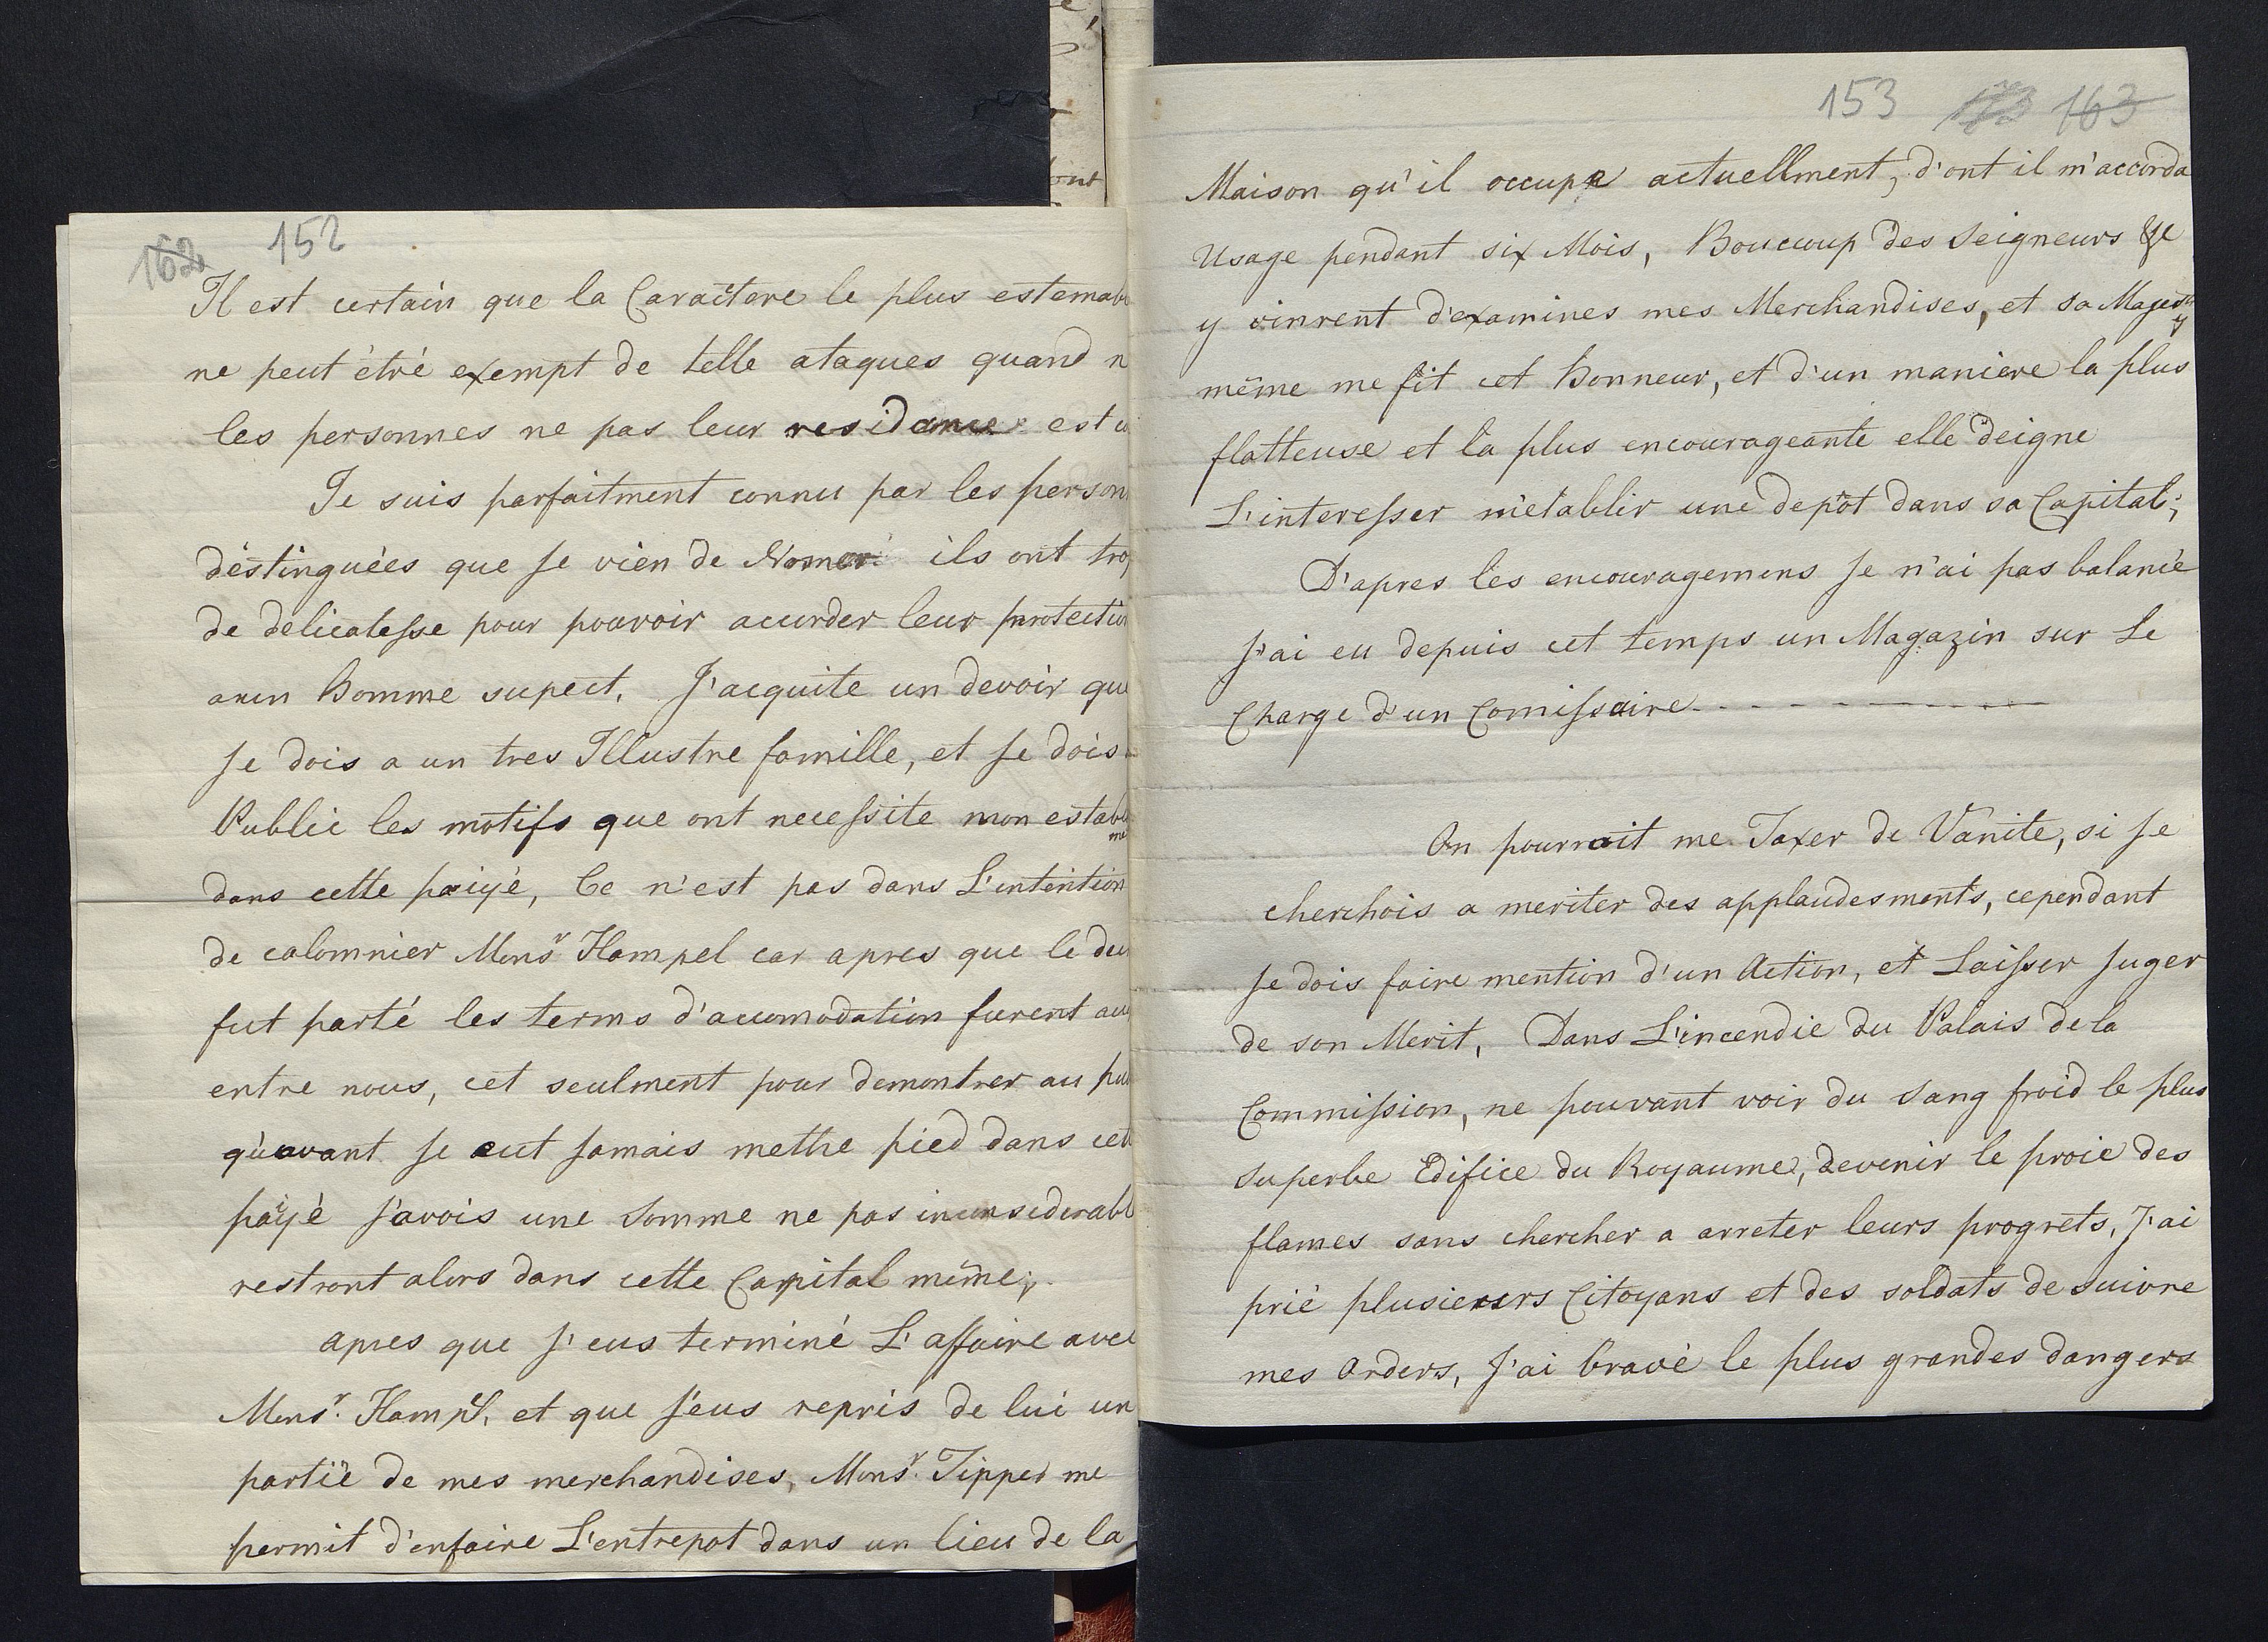 162 152
Il est certain que la Caractere le plus estemab
ne peut étré exempt de telle ataques quand n
les personnes ne pas leur residance est
Je suis parfaitment connu par les person
déstinguées que je vien de Nomer ils ont trop
de delicatesse pour pouvoir accorder leur protection
a un homme supect. J'acquite un devoir que
je dois a un tres Illustre famille, et je dois
Public les motifs que ont necessite mon estab
dans cette paiyé, Ce n'est pas dans L'intention
de calomnier Monsr Hampel car apres que le
fut parté les terms d'accomodation furent
entre nous, cet seulment pour demontrer au pu
qu'avant je eut jamais mettre pied dans cet
païyé j'avois une Somme ne pas inconsiderabl
restront alors dans cette Capital même;
apres que j'eus terminé L'affaire avec
Monsr. Hampl, et que j'eus repris de lui un
partië de mes merchandises, Monsr. Tipper me
permit d'enfaire L'entrepot dans un lieu de la
153 173 163
Maison qu'il occupe actuellment, d'ont il m'accorda
Usage pendant six Mois, Boucoup des Seigneurs &c
y vinrent d'examines mes Merchandises, et sa Majesty
même me fit cet honneur, et d'un maniere la plus
flatteuse et la plus encourageante elle deigne
L'interesser m'etablir une depôt dans sa Capital;
D'apres les encouragemens je n'ai pas balancé
j'ai eu depuis cet temps un Magazin sur Le
Charge d'un Comissaire
On pourrait me Taxer de Vanite, si je
cherchois a meriter des applaudesments, cependant
je dois faire mention d'un Action, et Laisser juger
de son Merit, Dans L'incendie du Palais de la
Commission, ne pouvant voir du Sang froid le plus
Superbe Edifice du Royaume, devenir le proie des
flames sans chercher a arreter leurs progrets, J'ai
prié plusieurs Citoyans et des soldats de suivre
mes Orders, J'ai bravé le plus grandes dangers